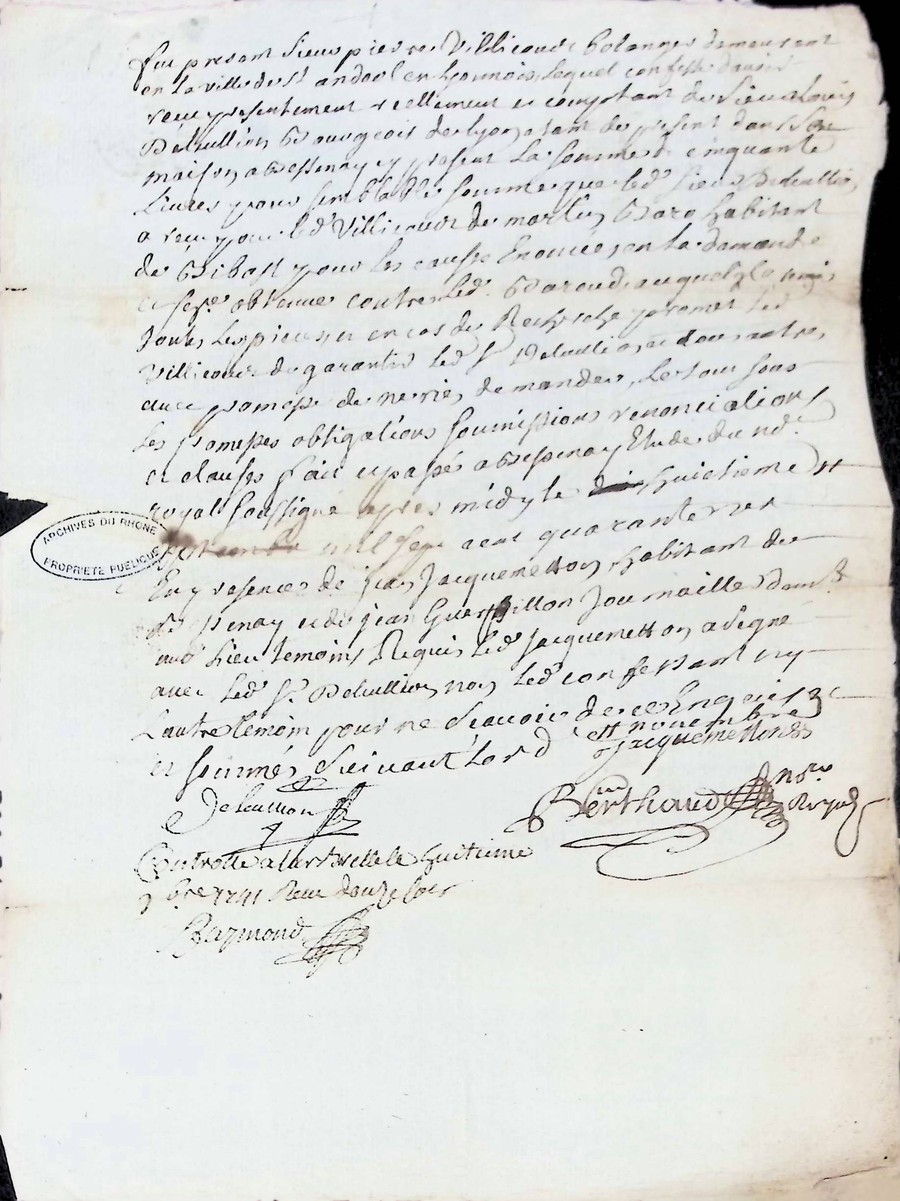 fut present sieur pierre Villicour Bolanger demeurant
en la ville de st andeol en Lyonnois, lequel confesse d'avoir
receu presentement reellement et comptant de sieur Louis
Deleullion Bourgeois de Lyon etant de present dans son
maison a Bessenay cy present la somme de cinquante
Livres pour semblable somme que led sieur Deleullion
a receu pour led Villicour de martin Baro habitant
de Bibost pour les causes Enoncées en la demande
et obtenue contre led. Baroud, auquel
toutes les pieces et en cas de Recherche promet led
Villicour de garantir led Sr Deleullion de tous
avec promesse de ne rien demander, Le tout sous
Les promesses obligations soumissions renonciations
et clauses fait et passé a Bessenay Etude du nore
royal soussigné apres midy le huictieme
mil sept cent quarante
En presence de jean Jacquemetton habitant du
Bessenay et de jean journaillier demt
aud Lieu temoins Requis led Jacquemetton a signé
avec led Sr Deleullion non led confessant ny
Lautre temoin pour ne scavoir de ce Enquis
et sommés suivant Lord
et novembre
Jacquemetton
Deleullion
Berthaud nore Royal
ARCHIVES DU RHONE
PROPRIETE PUBLIQUE
Controllé a larbrelle le huitieme
9bre 1741 Receu douze sols
Raymond